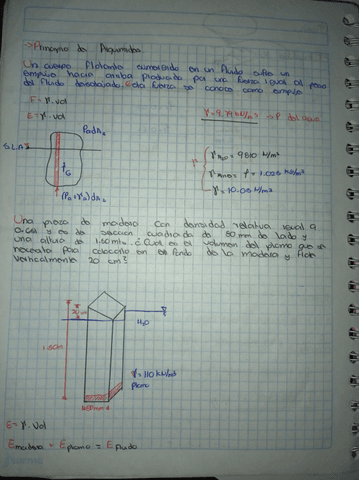 ->Principio de Arquimides.
Un cuerpo flotante sumergido en un fluido sufre un
empuje hacia arriba producido por una fuerza igual al peso
del fluido desalojado. Esta fuerza se conoce como empuje
E = γ. vol
E = γ. vol
S.L.A
γ H2O = 9810 N/m³
γ = 10.05 N/m³
Una pieza de madera con densidad relativa igual a
y es de sección cuadrada de 80 mm de lado y
una altura de 1.50 mts. ¿Cual es el volumen del plomo que se
necesita para colocarlo en el fondo de la madera y flote
verticalmente 20 cm?
20 cm
H2O
1.50m
γ = 110 KN/m³
plomo
E = γ. Vol
E madera = E plomo = E fluido